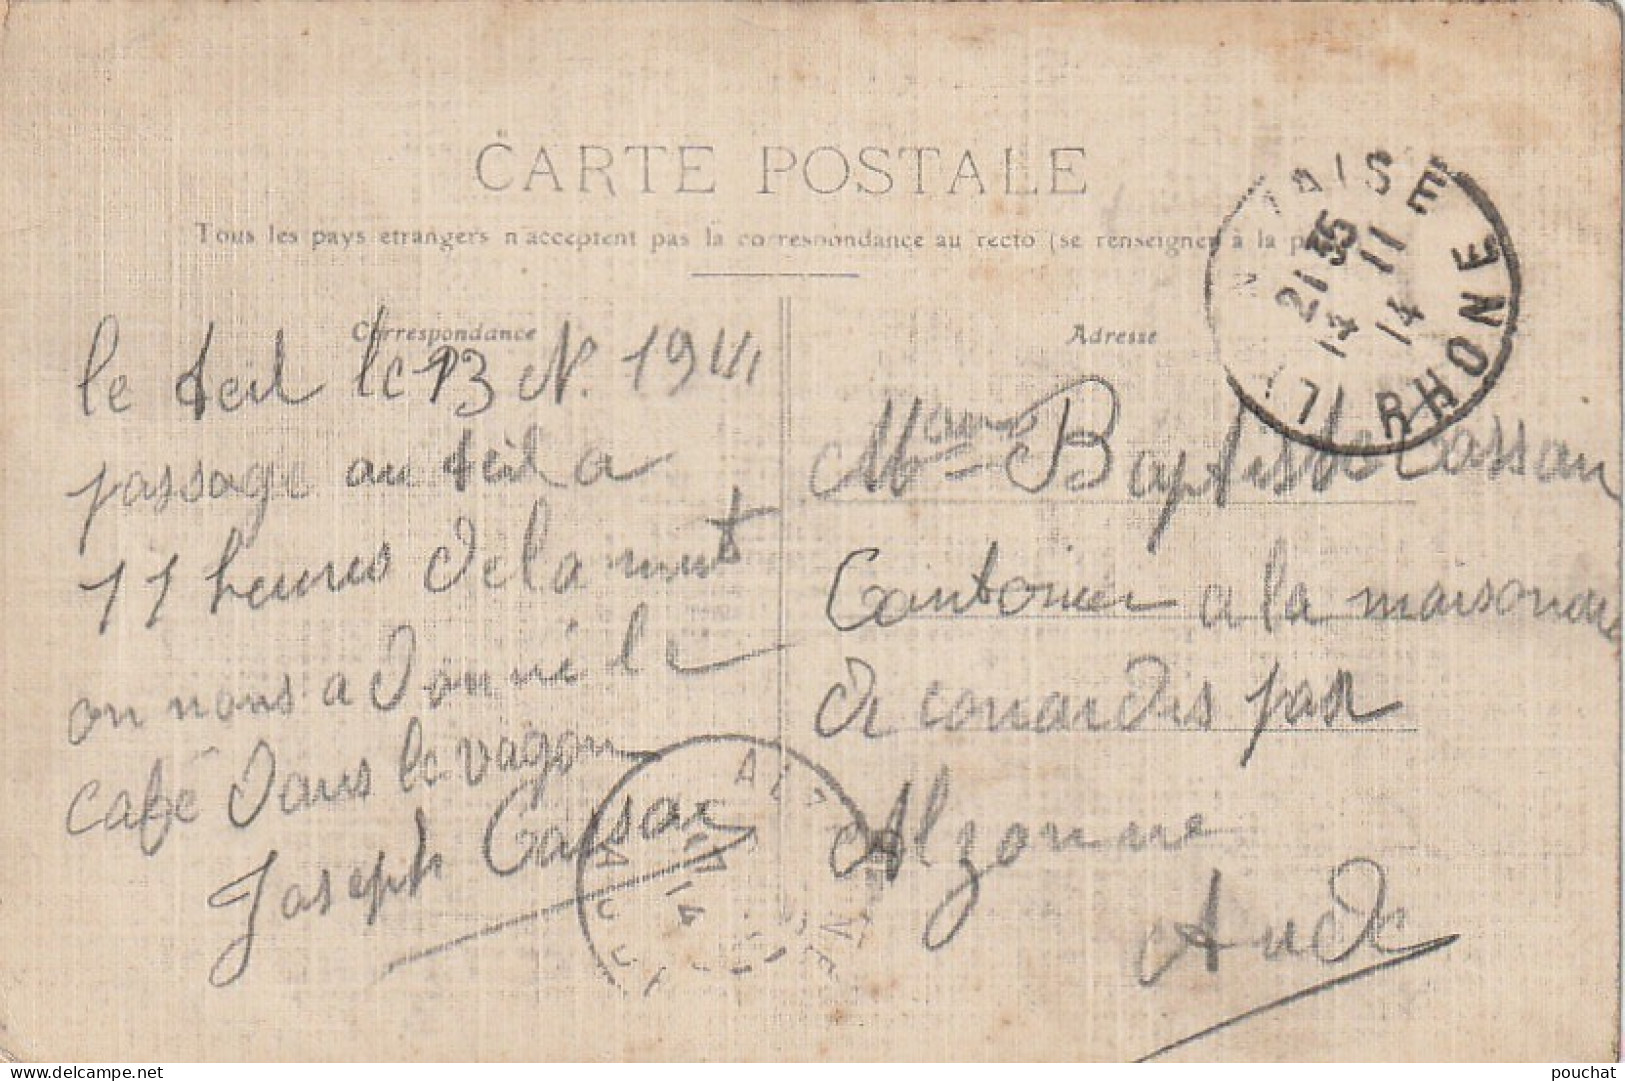 CARTE POSTALE
Tous les pays etrangers n'acceptent pas la correspondance au recto (se renseigner à la p
Correspondance
Adresse
le teil le 13 N. 1914
passage au teil a
11 heures de la nuit
on nous a donné le
café dans le vagon
Joseph Cassan
Mme Baptiste Cassan
Cantonier a la maisonaie
de couardis par
Alzonne
Aude
AISE
21 35
14 11
14
RHONE
ALZONNE
AUDE
14
pouchat